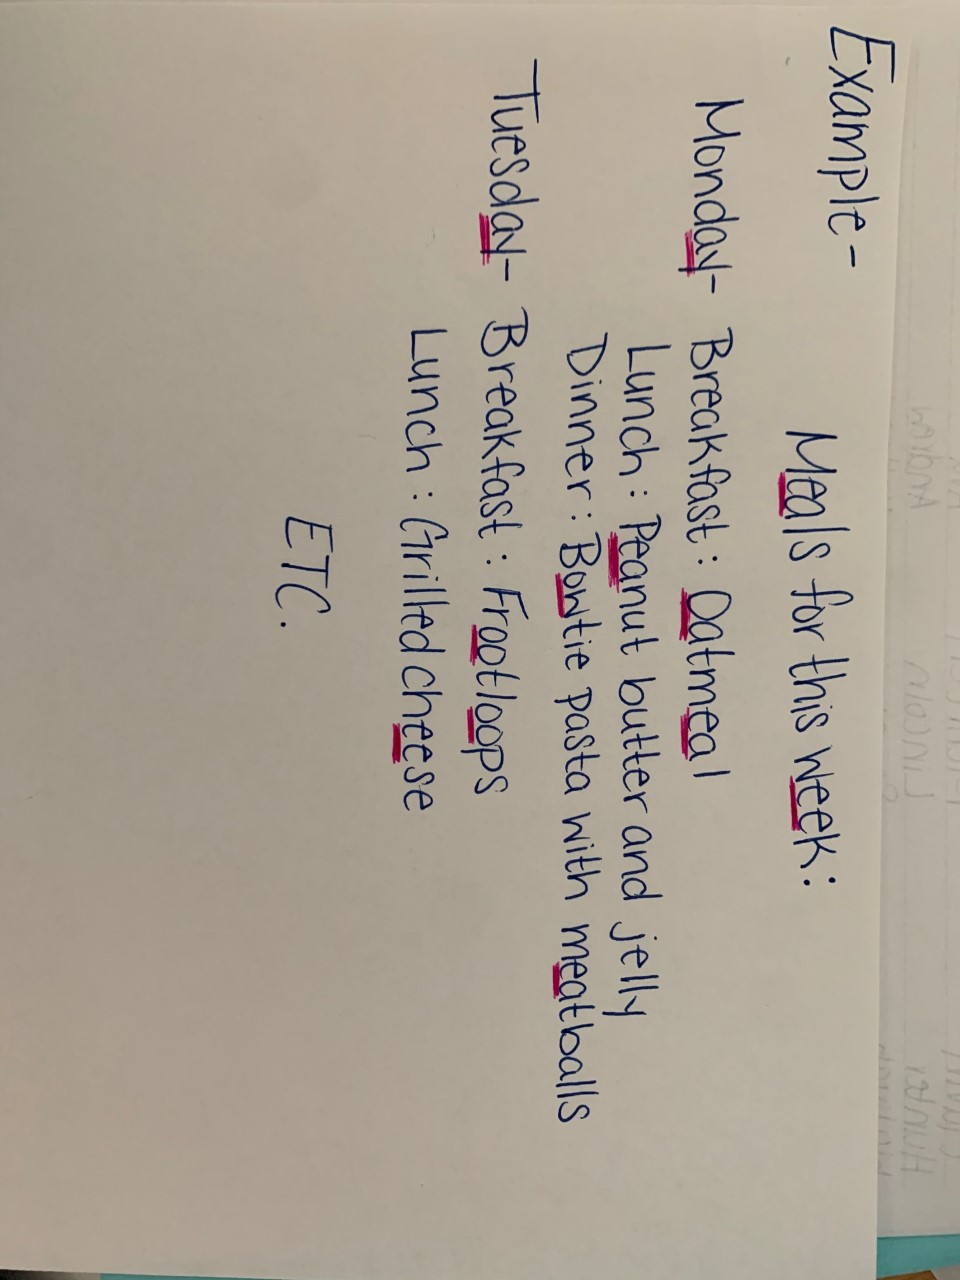 Example-
Meals for this week:
Monday- Breakfast: Oatmeal
Lunch: Peanut butter and jelly
Dinner: Bowtie pasta with meatballs
Tuesday- Breakfast: Frootloops
Lunch: Grilled cheese
ETC.